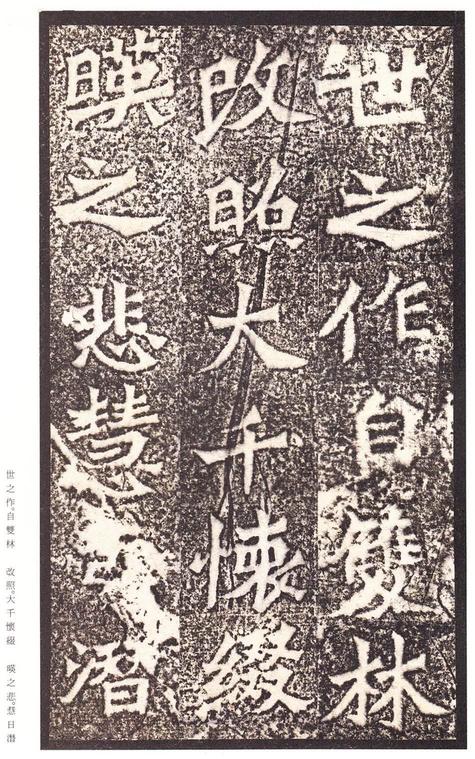 世之作自雙林
改照大千懷綴
暎之悲慧潛
世之作。自雙林　改照。大千懷綴　暎之悲。慧日潛